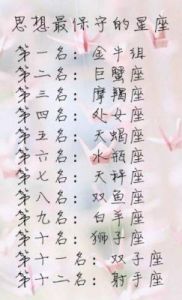 思想最保守的星座
第一名：金牛组
第二名：巨蟹座
第三名：摩羯座
第四名：处女座
第五名：天蝎座
第六名：水瓶座
第七名：天秤座
第八名：双鱼座
第九名：白羊座
第十名：狮子座
第十一名：双子座
第十二名：射手座